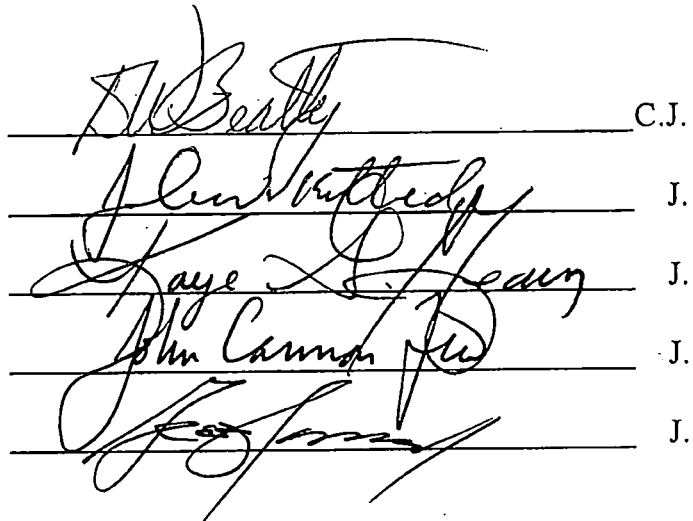 DWBeatty C.J.
John Kittredge J.
Kaye G. Hearn J.
John Cannon Few J.
J.